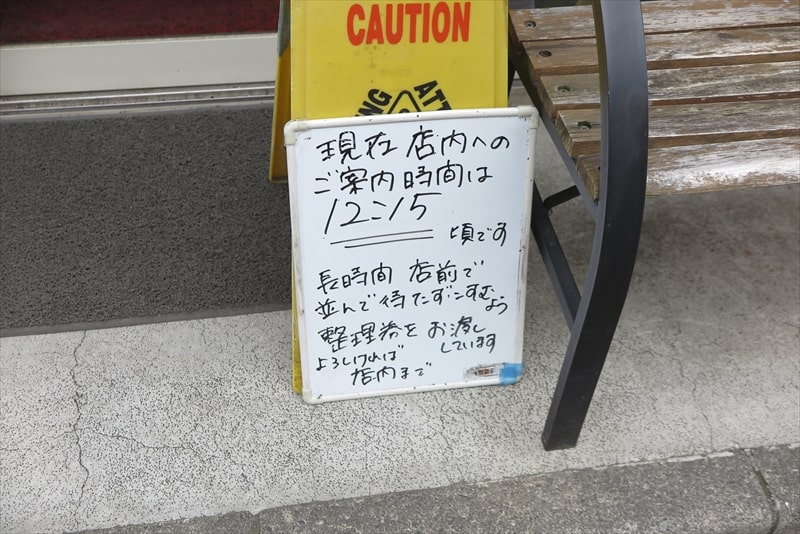 CAUTION
現在 店内への
ご案内時間は
12:15
頃です
長時間 店前で
並んで待たずにすむよう
整理券をお渡し
しています
よろしければ
店内まで